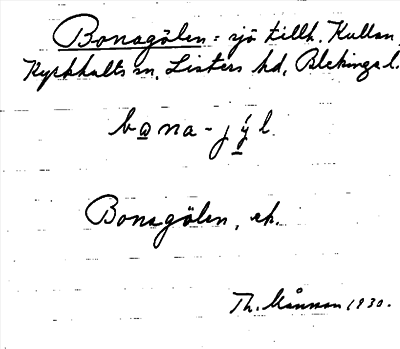 Bonagölen = sjö tillh. Kullan,
Kyrkhults sn, Listers hd, Blekinge l.
bana-jýl
Bonagölen, ek.
Th. Månsson 1930.